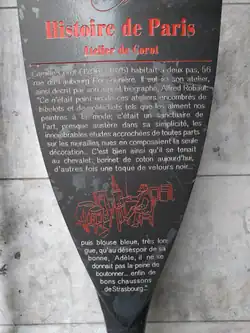 Histoire de Paris
Atelier de Corot
Camille Corot (1796-1875) habitait à deux pas, 56
rue du Faubourg Poissonnière. Il eut ici son atelier,
ainsi décrit par son ami et biographe, Alfred Robaut:
"Ce n'était point un de ces ateliers encombrés de
bibelots et de tapisseries tels que les aiment nos
peintres à la mode; c'était un sanctuaire de
l'art, presque austère dans sa simplicité, les
innombrables études accrochées de toutes parts
sur les murailles nues en composaient la seule
décoration... C'est bien ainsi qu'il se tenait
au chevalet: bonnet de coton aujourd'hui,
d'autres fois une toque de velours noir...
puis blouse bleue, très lon
gue, qu'au désespoir de sa
bonne, Adèle, il ne se
donnait pas la peine de
boutonner... enfin de
bons chaussons
de Strasbourg..."